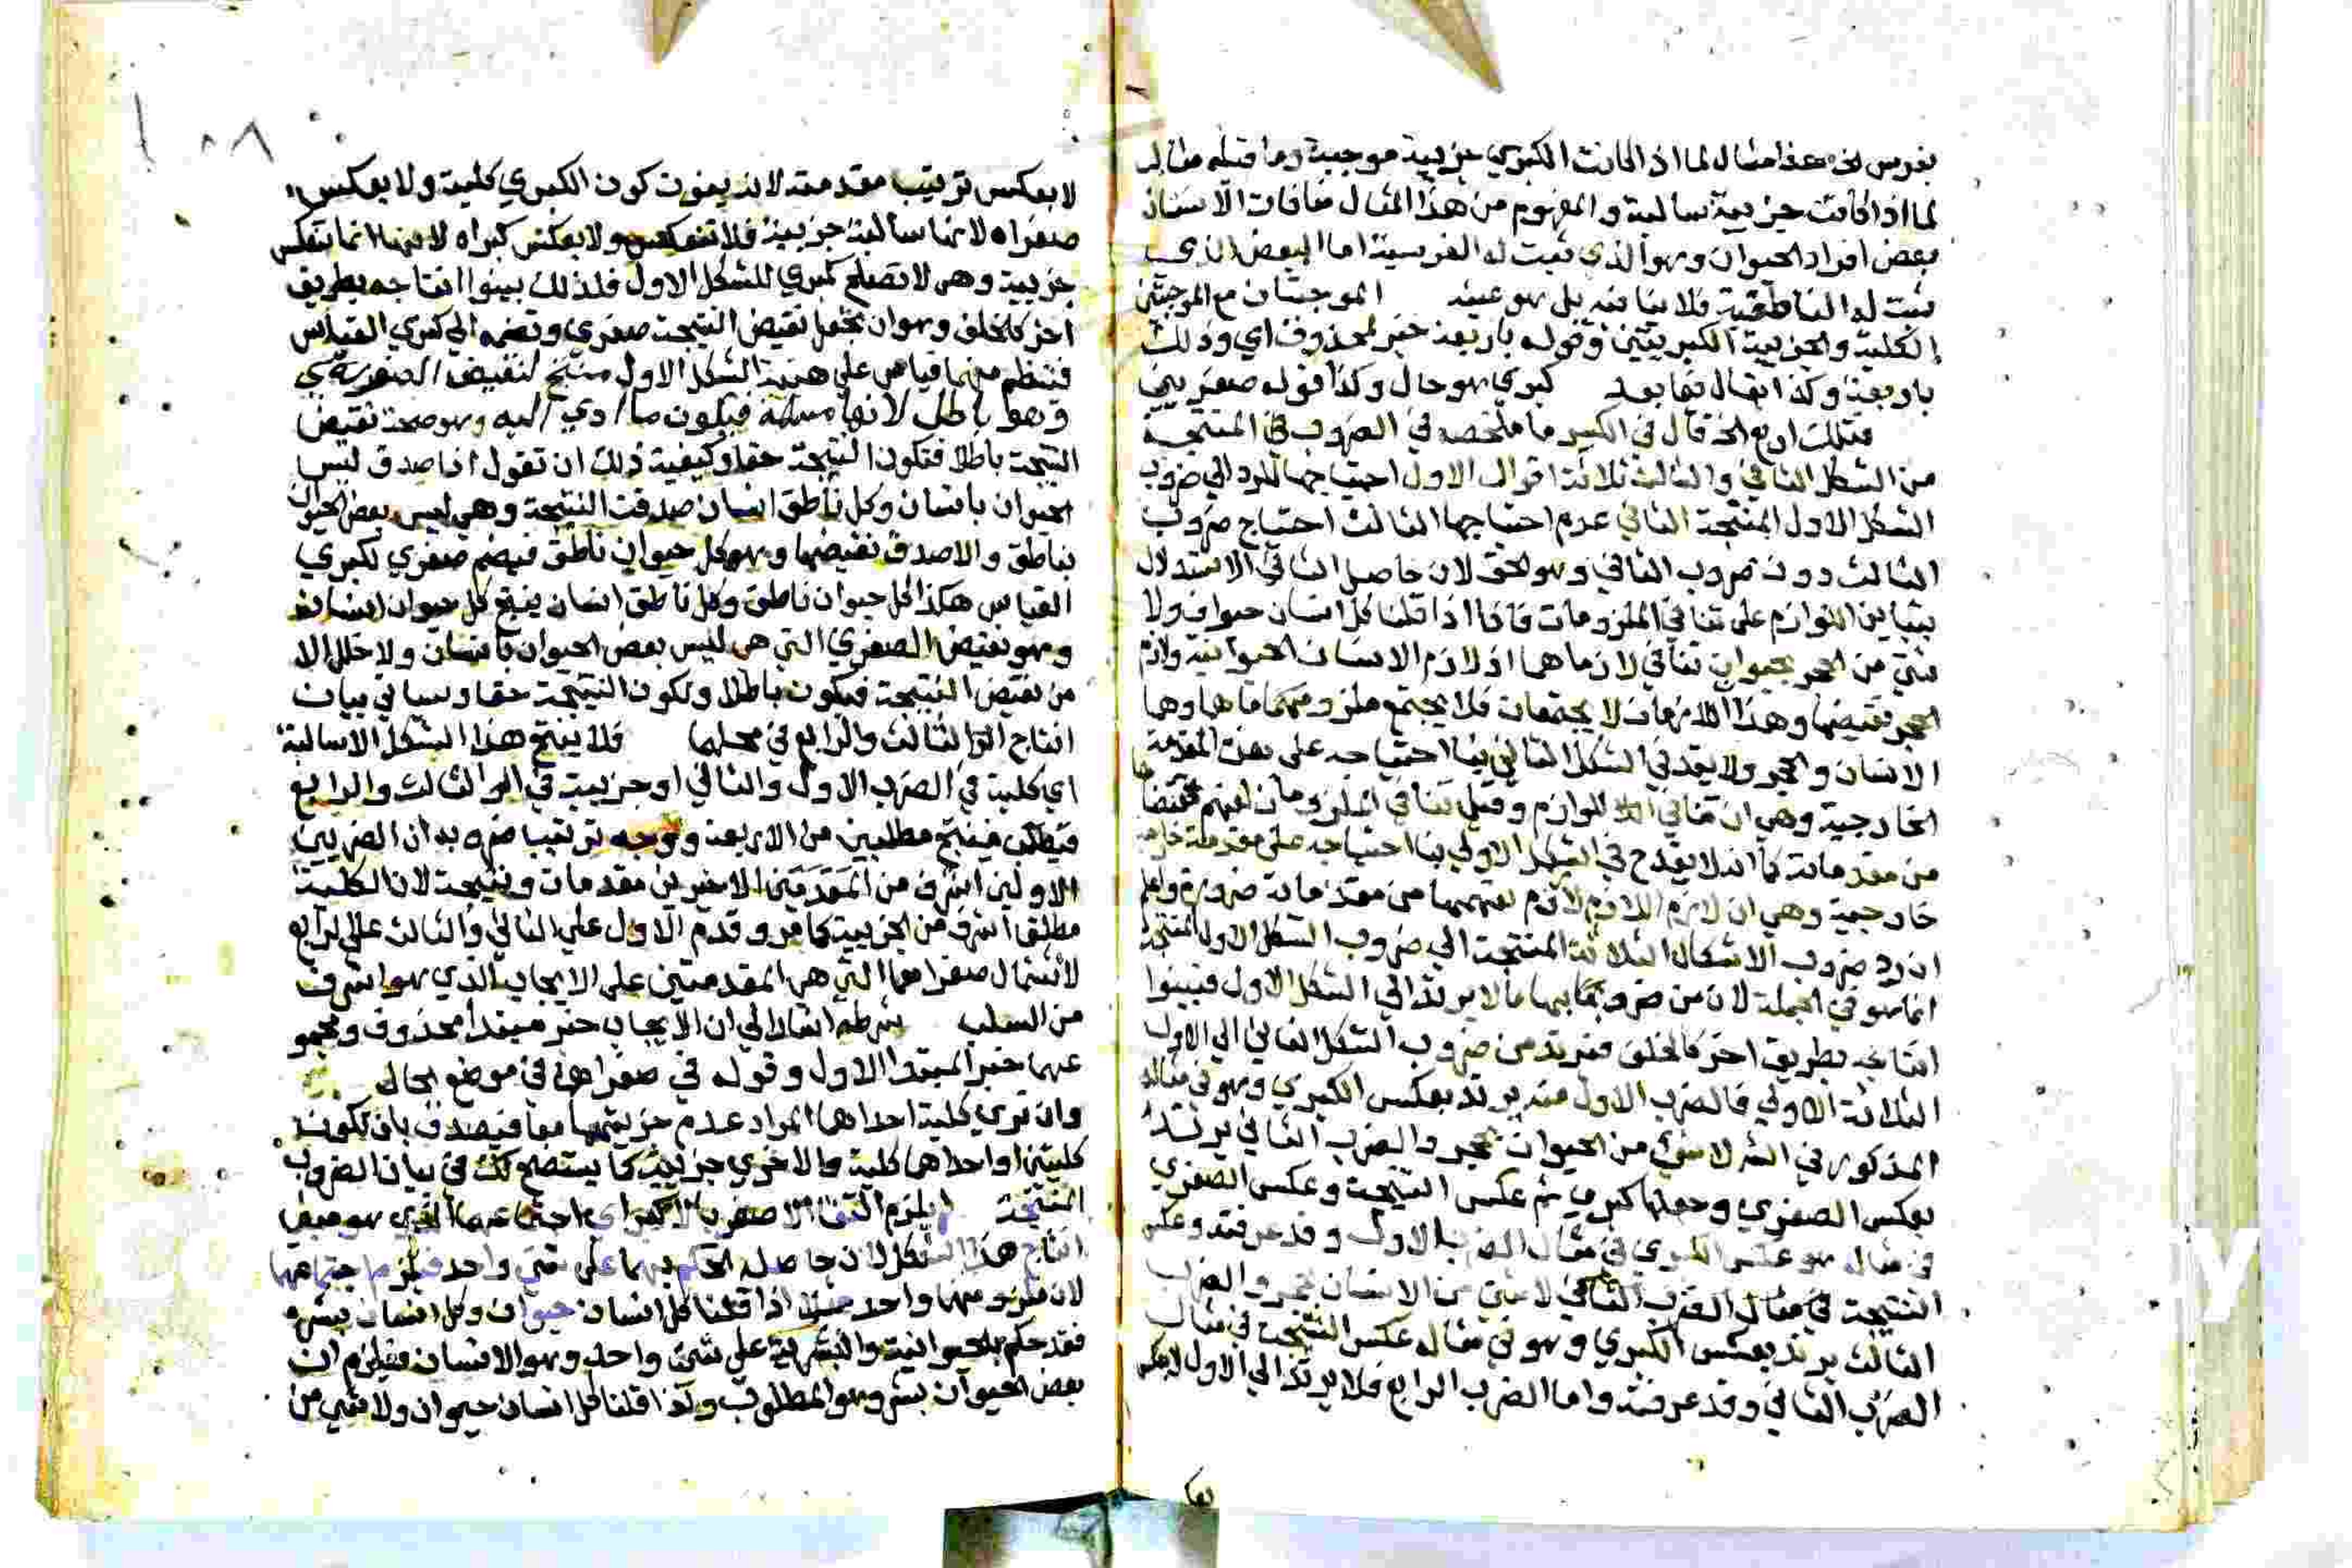 بفرس الخ هذا مثال لما اذا كانت الكبري جزيية موجبة وما قبله مثال
لما اذا كانت جزيية سالبة والمفهوم من هذا المثال منافات الانسان
بعض افراد الحيوان وهو الذي ثبت له الفرسية اما البعض الذي
ثبت له الناطقية فلا ينافيه بل هو عينه الموجبتان مع الموجبتين
الكلية والجزيية الكبريتين وقوله باربعة خبر لمحذوف اي وذلك
باربعة وكذا يقال فيما بعد كبري هو حال وكذا قوله صغريين
فتلك اربع الخ قال في الكبير ما ملخصه في الضروب المنتجة
من الشكل الثاني والثالث ثلاثة اقوال الاول احتياجها للرد الي ضروب
الشكل الاول المنتجة الثاني عدم احتياجها الثالث احتياج ضروب
الثالث دون ضروب الثاني وهو الحق لان حاصل الثاني الاستدلال
بتباين اللوازم على تنافي الملزومات فانا اذا قلنا كل انسان حيوان ولا
شي من الحجر بحيوان تنافي لازماهما اذ لازم الانسان الحيوانية ولازم
الحجر نقيضها وهذا اللازمان لا يجتمعان فلا يجتمع ملزومهما وهما
الانسان والحجر ولا يقدح في الشكل الثاني بنا احتياجه على هذه المقدمة
الخارجية وهي ان تنافي اللوازم وتنافي الملزومات
من مقدماته كما انه لا يقدح في الشكل الاول بنا احتياجه على مقدمة
خارجية وهي ان لازم اللازم لازم لفهمها من مقدماته ضرورة واعلم
ان رد ضروب الاشكال الثلاثة المنتجة الي ضروب الشكل الاول المنتجة
انما هو في الجملة لان من ضروبها ما لا يرتد الي الشكل الاول فبينوا
انتاجه بطريق اخر كالخلف فيرتد من ضروب الشكل الثاني الي الاول
الثلاثة الاولي فالضرب الاول منه يرتد بعكس الكبري وهو في مثاله
المذكور في الش لا شي من الحيوان بحجر والضرب الثاني يرتد
بعكس الصغري وجعلها كبري ثم عكس النتيجة وعكس الصغري
في مثاله هو عكس الكبري في مثال الضرب الاول وقد عرفته وعكس
النتيجة في مثال الضرب الثاني لا شي من الانسان بحجر والضرب
الثالث يرتد بعكس الكبري وهو في مثاله عكس النتيجة في مثال
الضرب الثاني وقد عرفته واما الضرب الرابع فلا يرتد الي الاول
١٠٨
لا بعكس ترتيب مقدمته لانه يفوت كون الكبري كلية ولا بعكس
صغراه لانها سالبة جزيية فلا تنعكس ولا بعكس كبراه لانها انما تنعكس
جزيية وهي لا تصلح كبري للشكل الاول فلذلك بينوا انتاجه بطريق
اخر كالخلف وهو ان تجعل نقيض النتيجة صغري وتضمه الي كبري القياس
فينتظم منهما قياس على هيية الشكل الاول منتج لنقيض الصغري
وهو باطل لانها مسلمة فيكون ما ادي اليه وهو صحة نقيض
النتيجة باطلا فتكون النتيجة حقا وكيفية ذلك ان تقول اذا صدق ليس
الحيوان بانسان وكل ناطق انسان صدقت النتيجة وهي ليس بعض الحيوان
بناطق والا صدق نقيضها وهو كل حيوان ناطق فيضم صغري لكبري
القياس هكذا كل حيوان ناطق وكل ناطق انسان ينتج كل حيوان انسان
وهو نقيض الصغري التي هي ليس بعض الحيوان بانسان ولا خلل الا
من نقيض النتيجة فيكون باطلا وتكون النتيجة حقا وسياتي بيان
انتاج الثالث والرابع في محلهما فلا ينتج هذا الشكل الا سالبة
اي كلية في الضرب الاول والثاني او جزيية في الثالث والرابع
فينتج مطلبين من الاربعة ووجه ترتيب ضروبه ان الضربين
الاولين اشرف من الاخيرين مقدمات ونتيجة لان الكلية
مطلقا اشرف من الجزيية كما مر وقدم الاول علي الثاني والثالث علي الرابع
لاشتمال صغراهما التي هي المقدمتين على الايجاب الذي هو اشرف
من السلب شرطه اشار الي ان الايجاب خبر مبتدا محذوف ومجمو
عهما خبر المبتدا الاول وقوله في صغراهما في موضع الحال
وان تري كلية احداهما المراد عدم جزيتهما معا فيصدق بان تكونا
كليتين او احداهما كلية والاخري جزيية كما يستضح لك في بيان الضروب
المنتجة ليلزم التقا الاصغر بالاكبر اي اجتماعهما الذي هو مبني
انتاج هذا الشكل لان حاصله الحكم بهما على شي واحد فيلزم اجتماعهما
لان ملزومهما واحد مثلا اذا قلنا كل انسان حيوان وكل انسان بشر
فقد حكم بالحيوانية والبشرية على شي واحد وهو الانسان فيلزم ان
بعض الحيوان بشر وهو المطلوب وكذا قلنا كل انسان حيوان ولا شي من